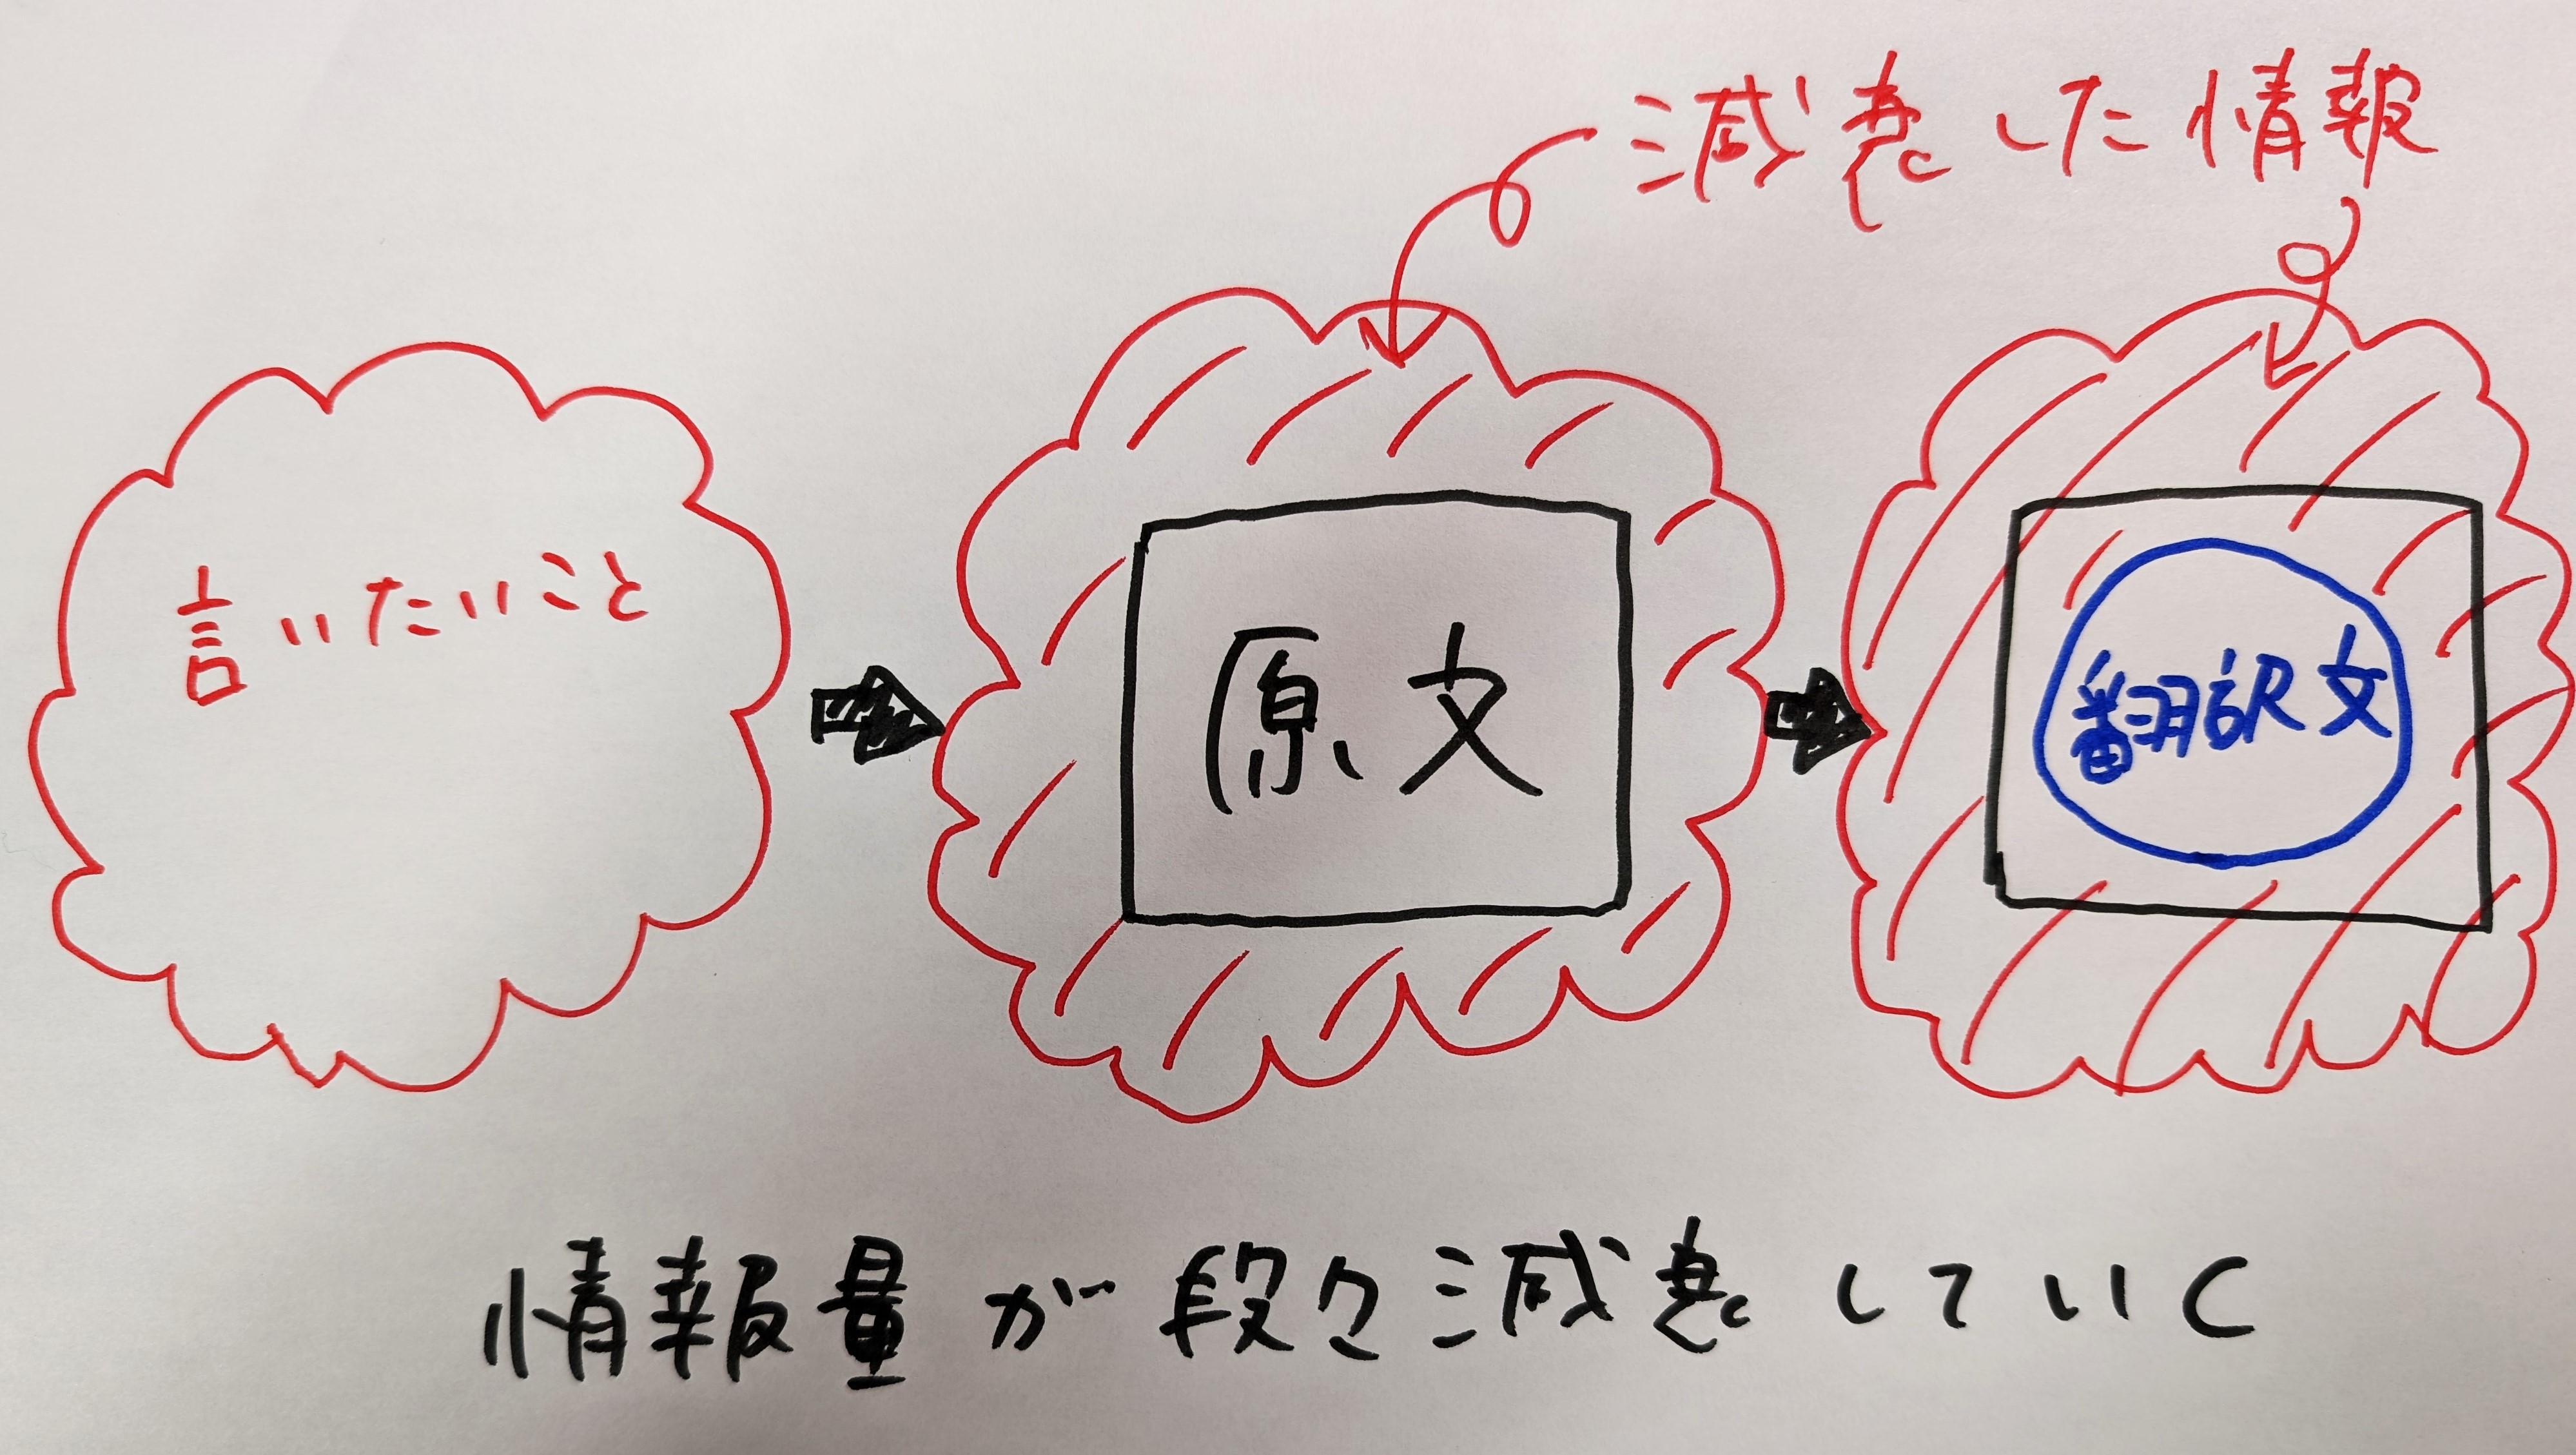 減衰した情報
言いたいこと
原文
翻訳文
情報量が段々減衰していく